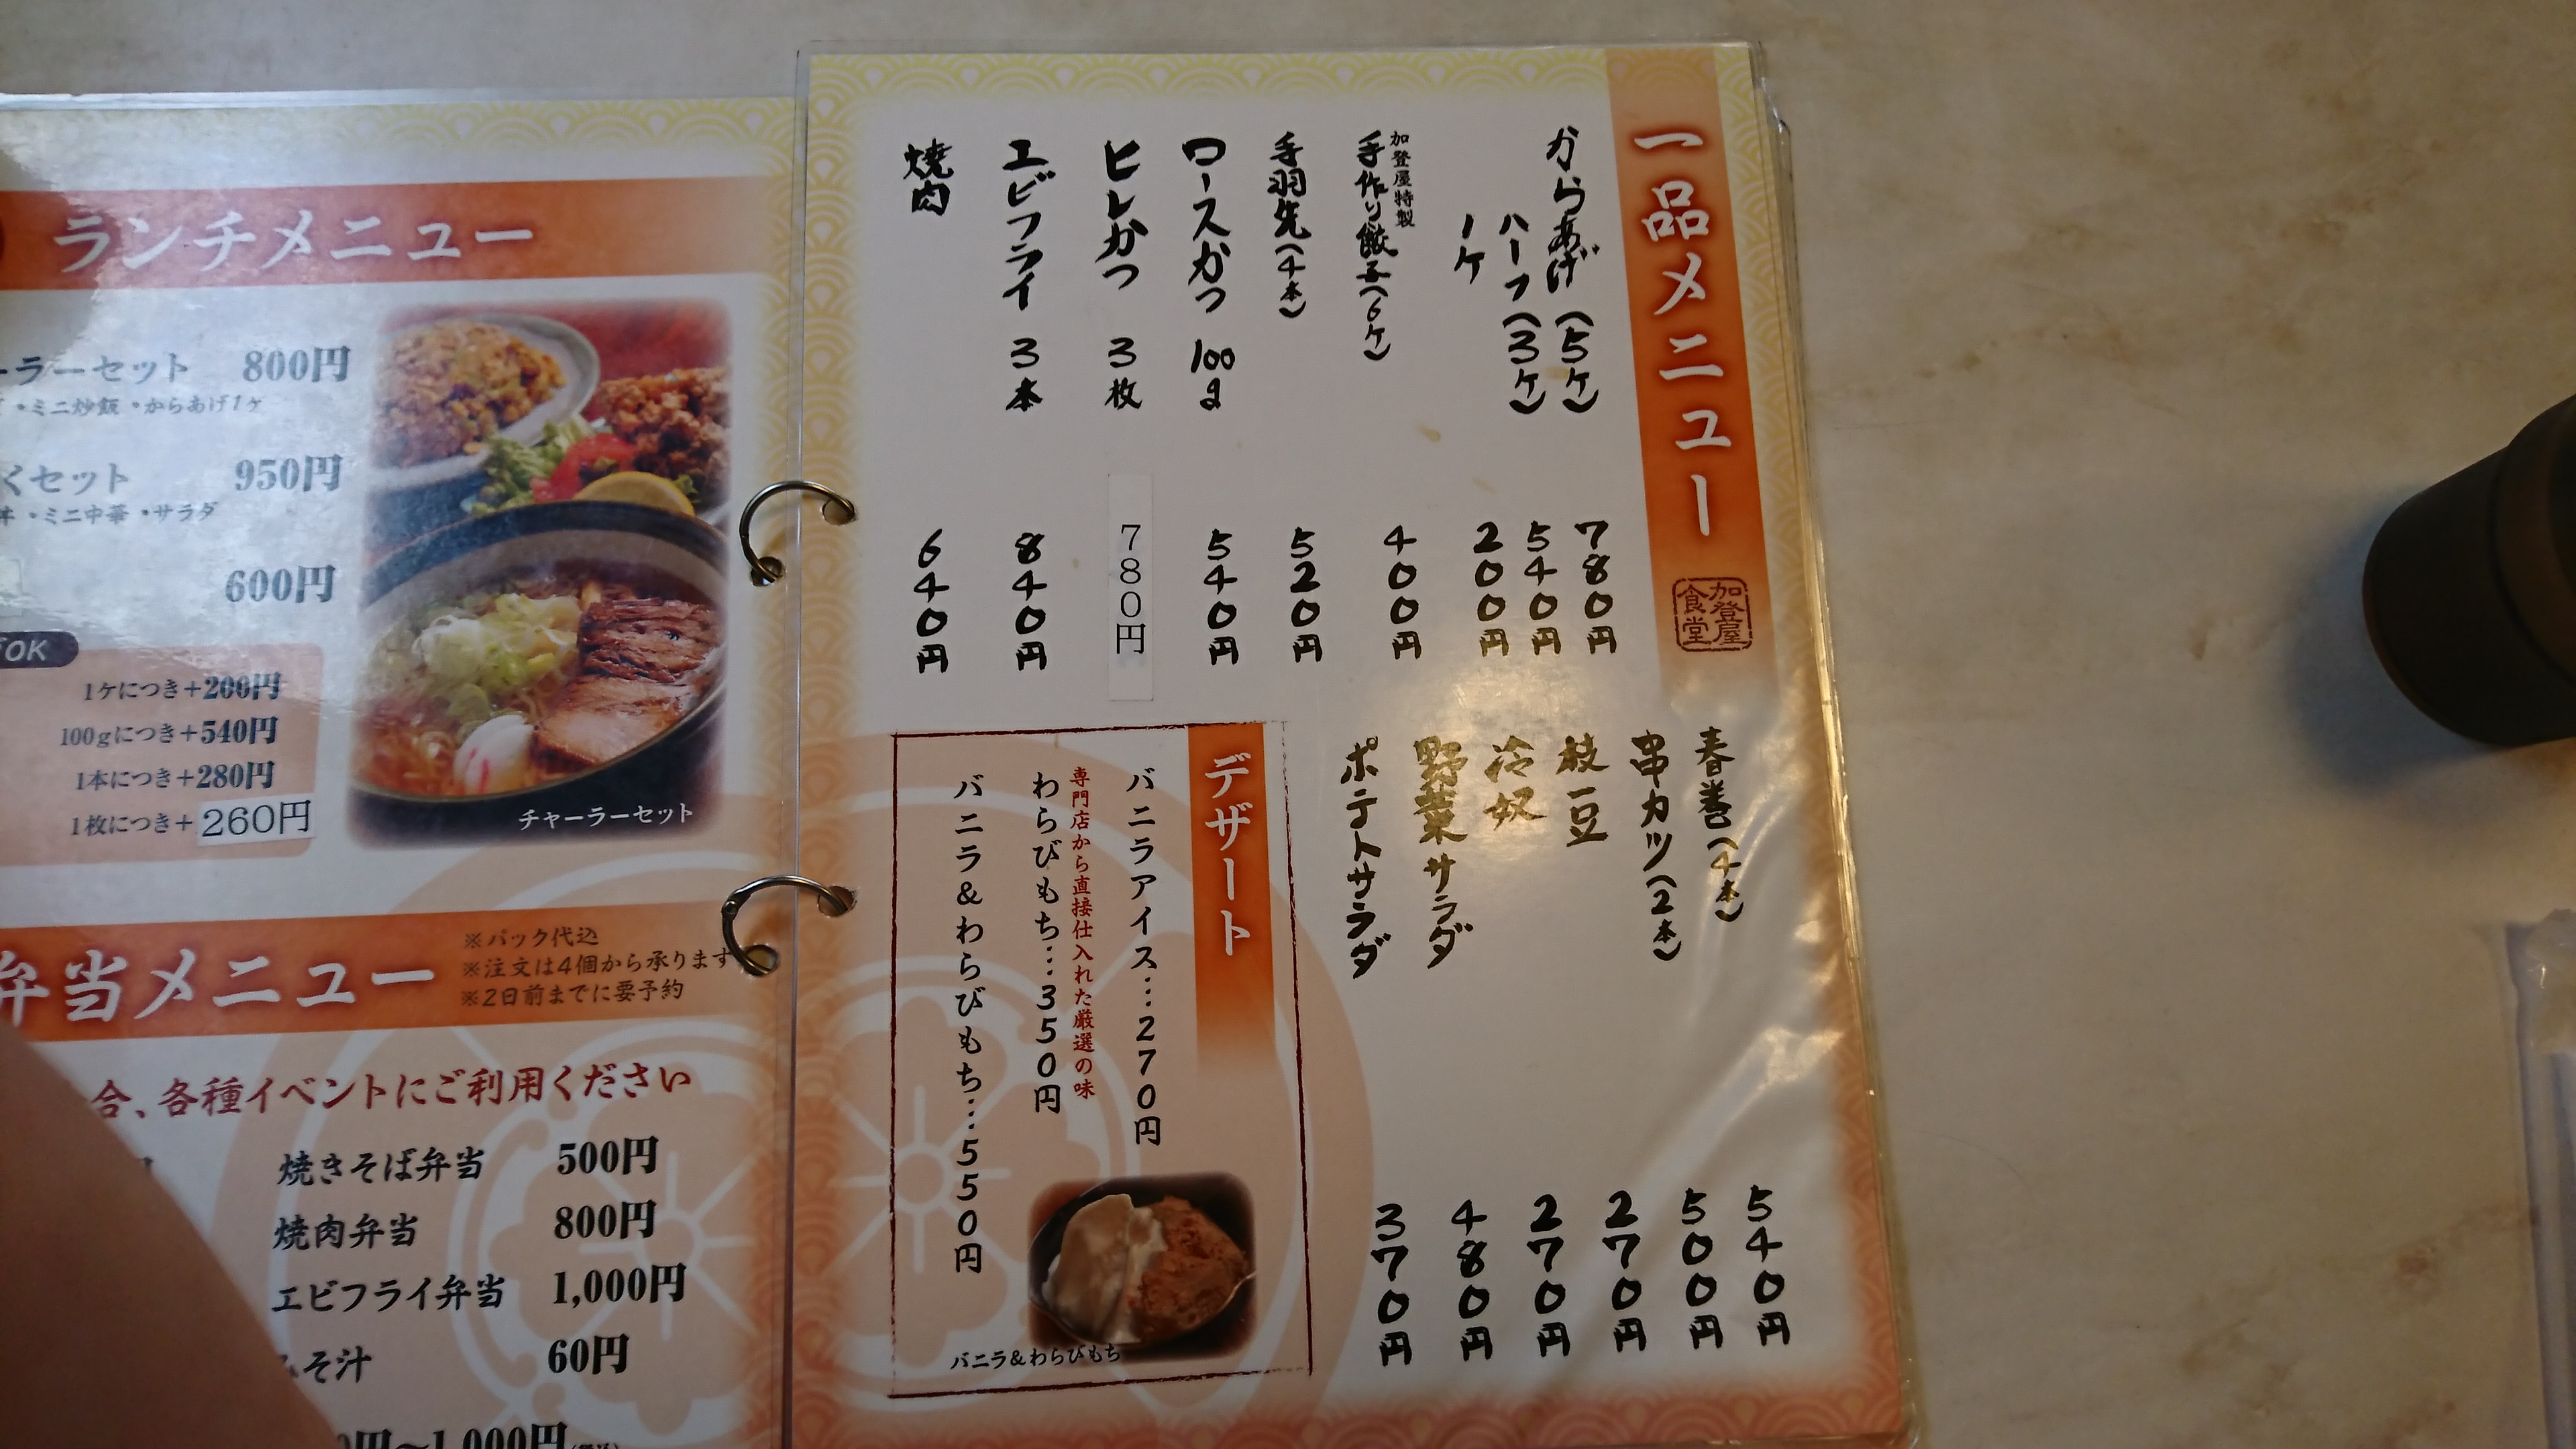 ランチメニュー
ーラーセット 800円
・ミニ炒飯 ・からあげ1ヶ
くセット 950円
丼 ・ミニ中華 ・サラダ
600円
OK
1ケにつき+200円
100gにつき+540円
1本につき+280円
1枚につき+260円
チャーラーセット
弁当メニュー
※パック代込
※注文は4個から承ります
※2日前までに要予約
合、各種イベントにご利用ください
焼きそば弁当 500円
焼肉弁当 800円
エビフライ弁当 1,000円
みそ汁 60円
0円〜1,000円
一品メニュー
加登屋食堂
からあげ(5ケ) 780円
ハーフ(3ケ) 540円
1ケ 200円
加登屋特製
手作り餃子(6ケ) 400円
手羽先(4本) 520円
ロースかつ 100g 540円
ヒレかつ 3枚 780円
エビフライ 3本 840円
焼肉 640円
春巻(4本) 540円
串カツ(2本) 500円
枝豆 270円
冷奴 270円
野菜サラダ 480円
ポテトサラダ 370円
デザート
バニラアイス…270円
専門店から直接仕入れた厳選の味
わらびもち…350円
バニラ&わらびもち…550円
バニラ&わらびもち